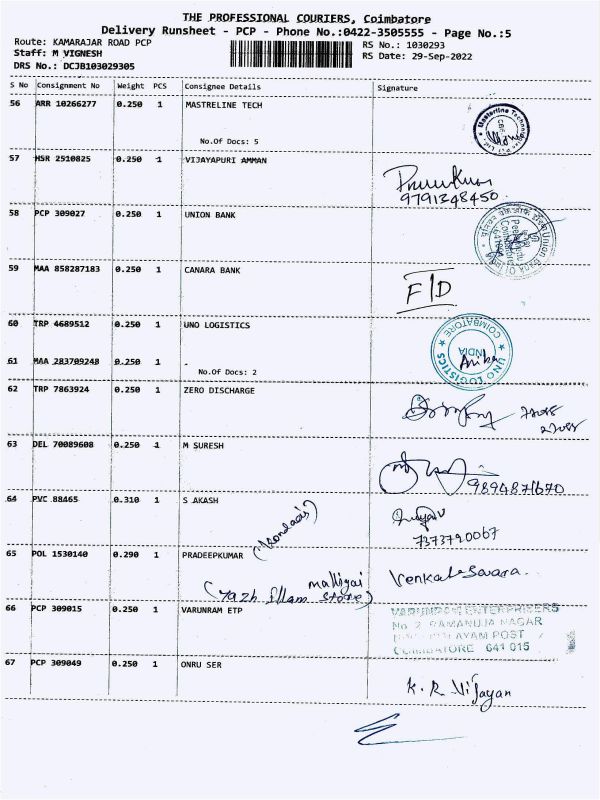 THE PROFESSIONAL COURIERS, Coimbatore
Delivery Runsheet - PCP - Phone No.:0422-3505555 - Page No.:5
Route: KAMARAJAR ROAD PCP
RS No.: 1030293
Staff: M VIGNESH
RS Date: 29-Sep-2022
DRS No.: DCJB103029305
S No Consignment No Weight PCS Consignee Details Signature
56 ARR 10266277 0.250 1 MASTRELINE TECH
No.Of Docs: 5
57 HSR 2510825 0.250 1 VIJAYAPURI AMMAN
9791348450
58 PCP 309027 0.250 1 UNION BANK
59 MAA 858287183 0.250 1 CANARA BANK
F/D
60 TRP 4689512 0.250 1 UNO LOGISTICS
COIMBATORE
INDIA
UNO LOGISTICS
61 MAA 283709248 0.250 1 -
No.Of Docs: 2
62 TRP 7863924 0.250 1 ZERO DISCHARGE
63 DEL 70089608 0.250 1 M SURESH
9894871670
64 PVC 88465 0.310 1 S AKASH
7373790067
65 POL 1530140 0.290 1 PRADEEPKUMAR
Venkateswara
(Yazh Illam malligai Store)
66 PCP 309015 0.250 1 VARUNRAM ETP
VARUNRAM ENTERPRISERS
No 2 RAMANUJA NAGAR
LAYAM POST
COIMBATORE 641 015
67 PCP 309049 0.250 1 ONRU SER
K. R. Vijayan